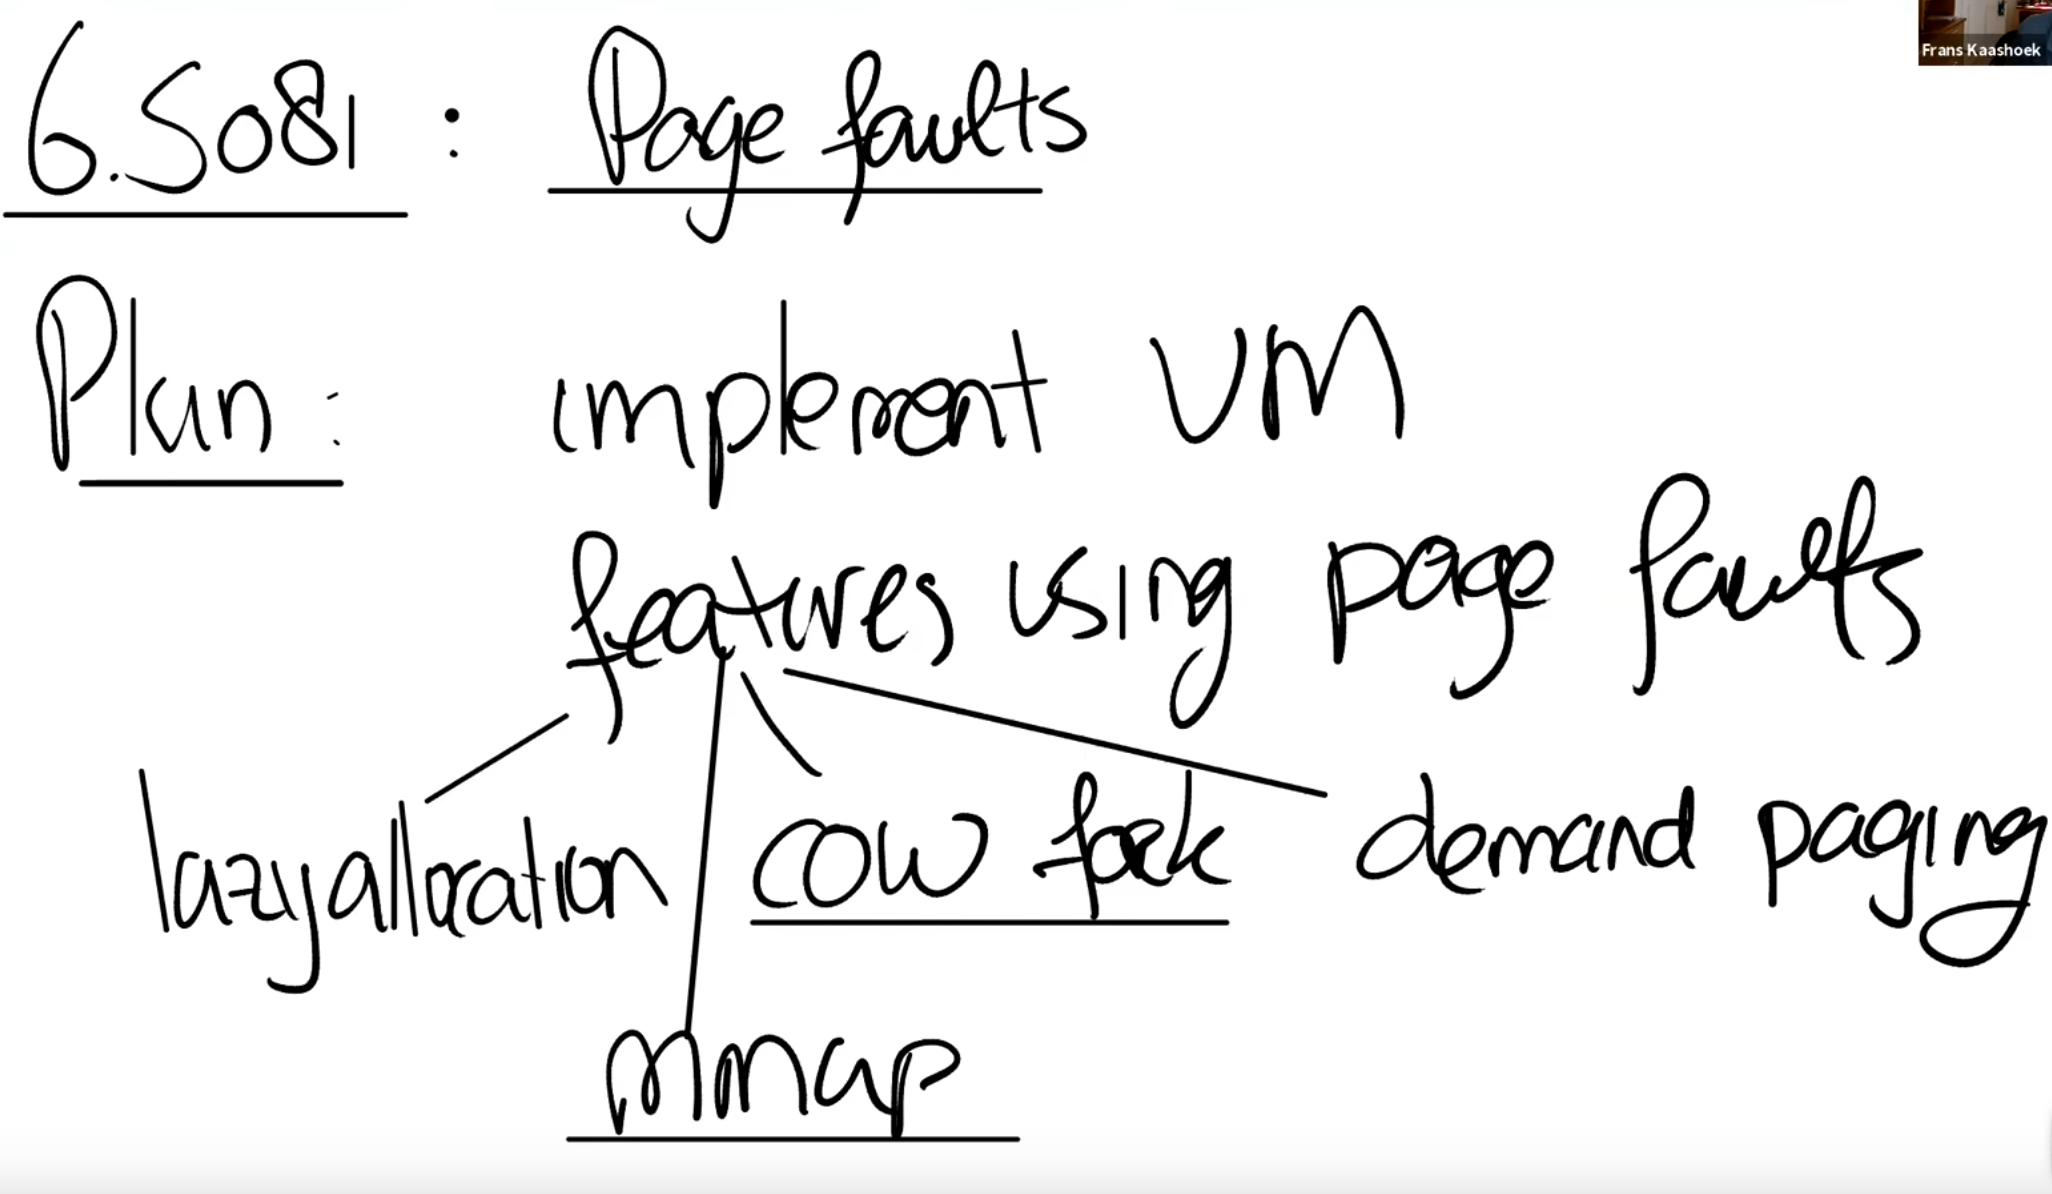 Frans Kaashoek
6.S081 : Page faults
Plan: implement VM
features using page faults
lazy allocation COW fork demand paging
mmap